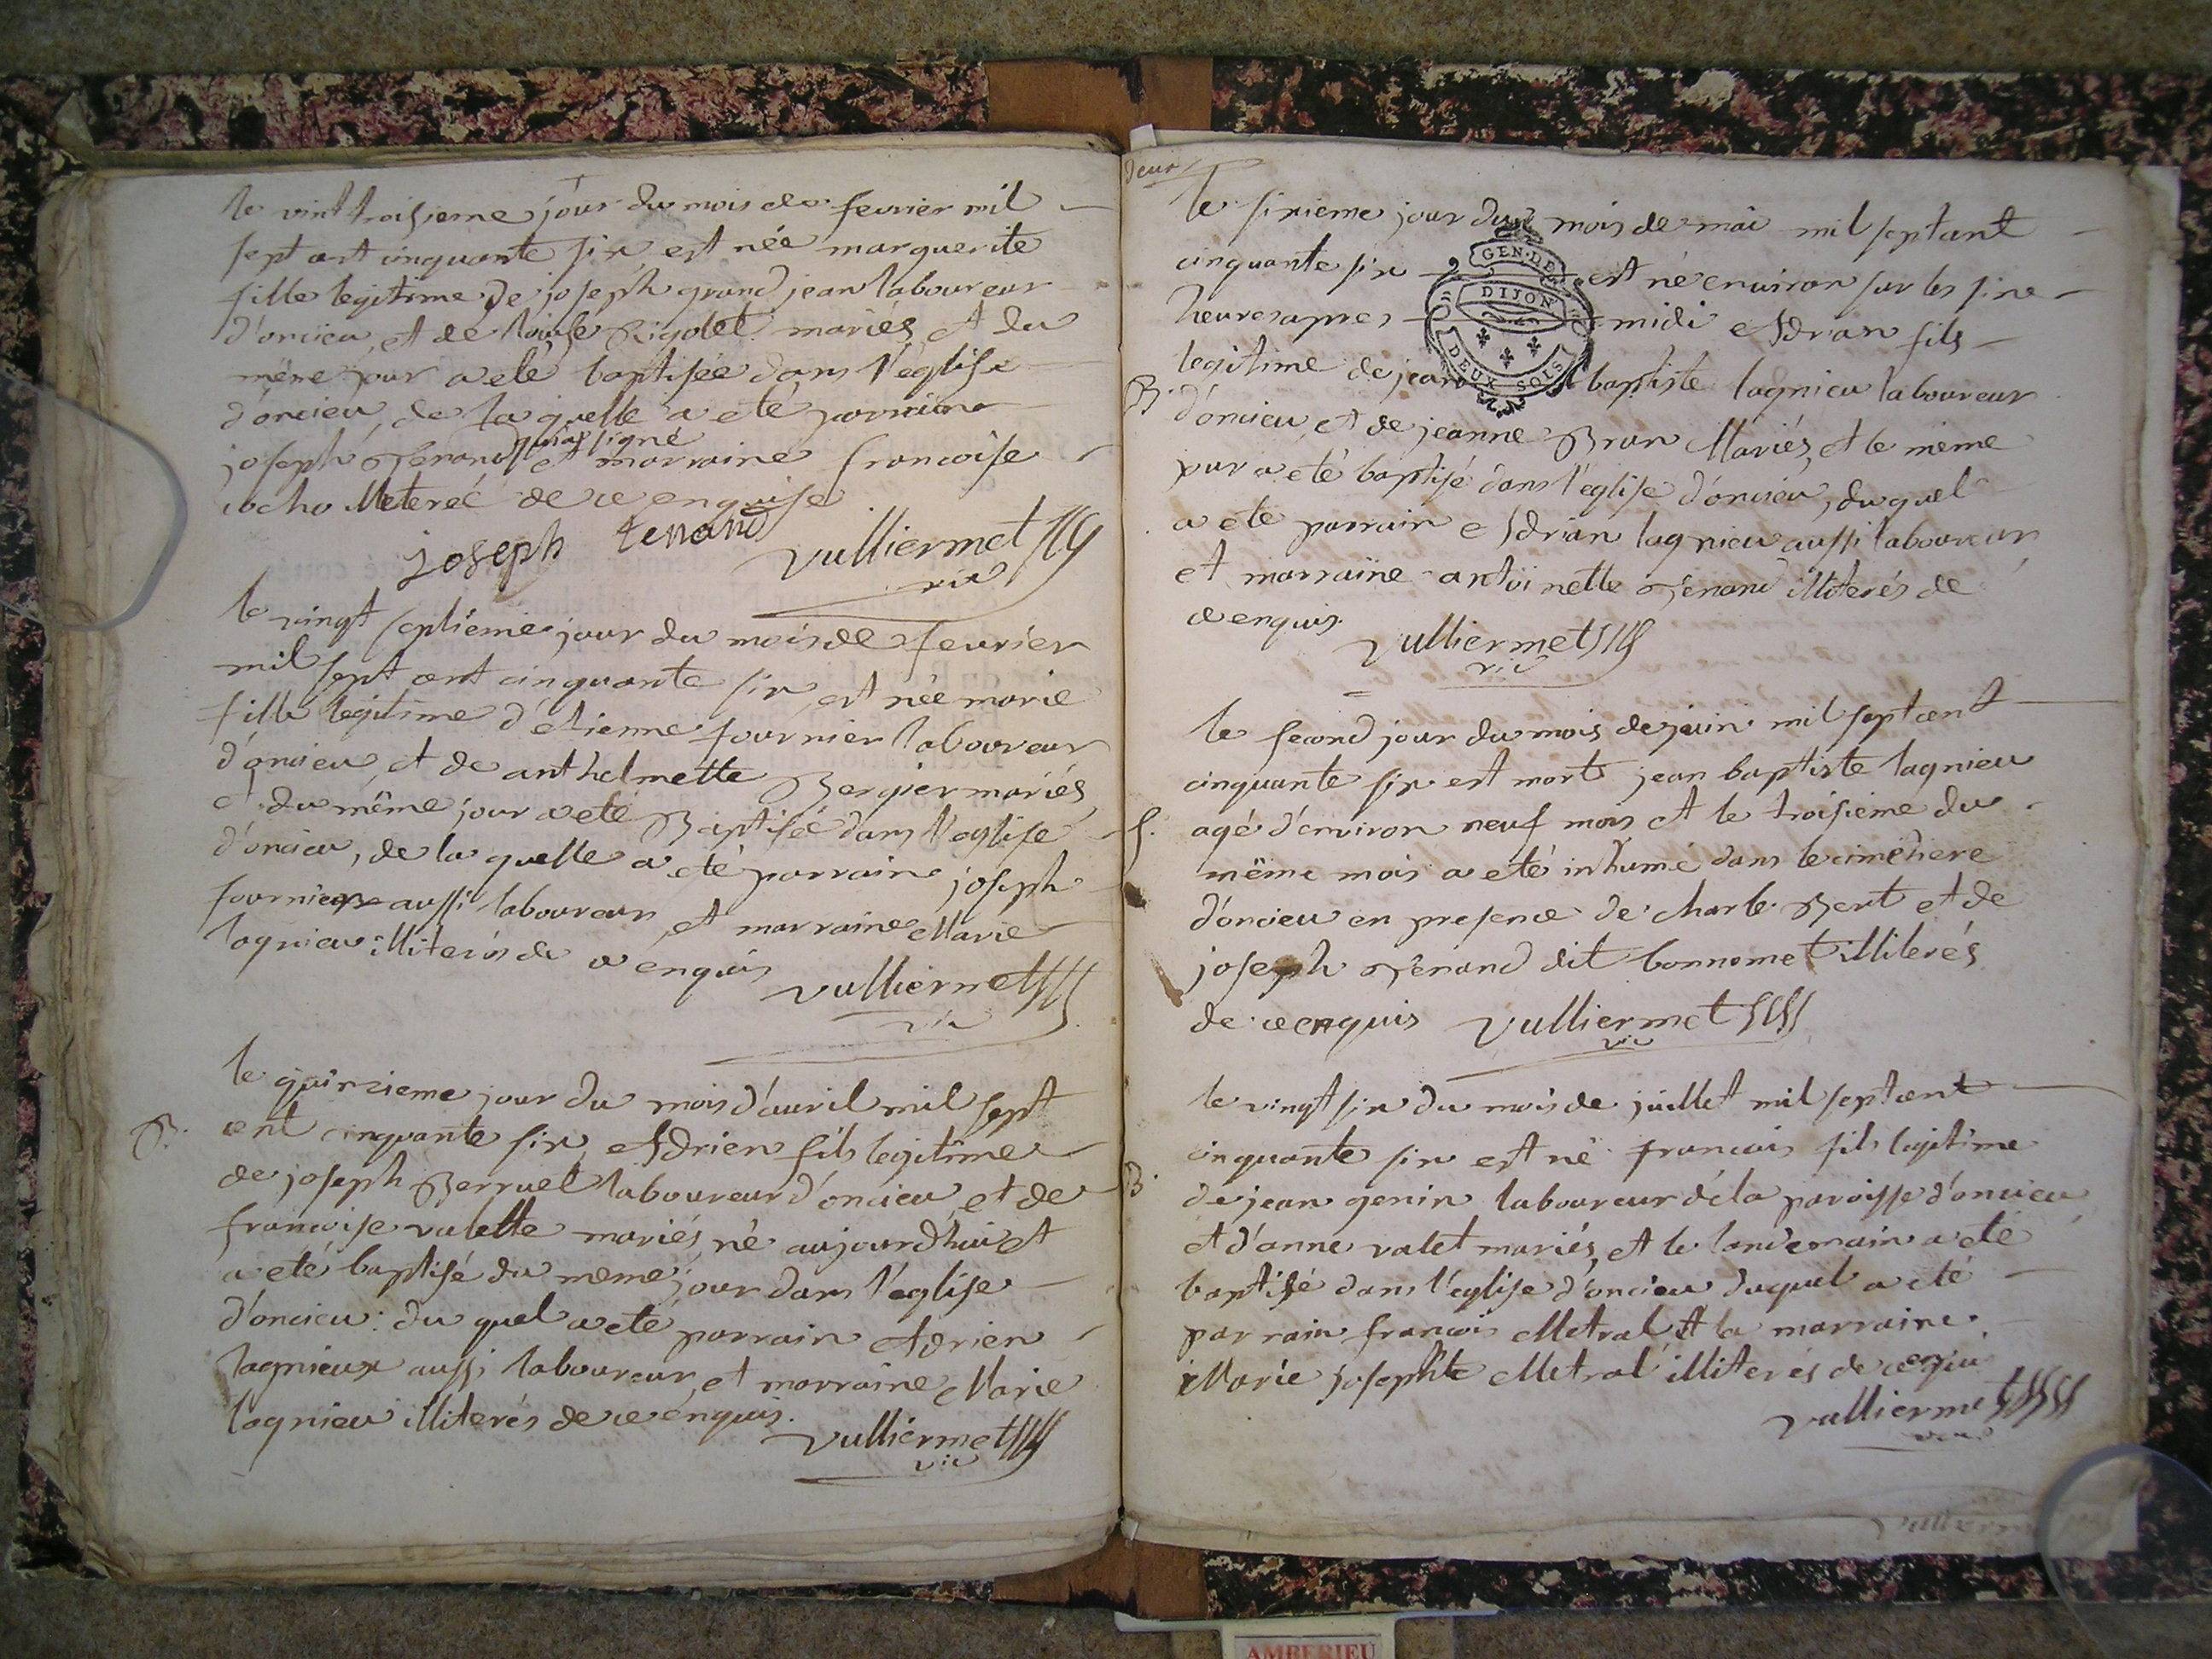 le vint troisieme jour du mois de fevrier mil
sept cent cinquante six est née marguerite
fille legitime de joseph grand jean laboureur
d'oncieu, et de louise Rigolet mariés et du
même jour a eté baptisée dans l'église
d'oncieu, de la quelle a eté parrain
qui a signé
joseph Tenand et marraine francoise
illetereé de ce enquise
joseph tenand Vulliermet
vic
le vingt septieme jour du mois de fevrier
mil sept cent cinquante six est née marie
fille legitime d'etienne fournier laboureur
d'oncieu, et de anthelmette Bergier mariés
et du même jour a eté Baptisée dans l'eglise
d'oncieu, de la quelle a eté parrain joseph
fournier aussi laboureur et marraine Marie
lagnieu illiterés de ce enquis
Vulliermet
vic
le quinzieme jour du mois d'avril mil sept
B. cent cinquante six, Adrien fils legitime
de joseph Berruel laboureur d'oncieu et de
francoise valette mariés, né aujourdhui et
a eté baptisé du meme jour dans l'eglise
d'oncieu: du quel a eté parrain Adrien
lagnieux aussi laboureur, et marraine Marie
lagnieu illiterés de ce enquis.
Vulliermet
vic
deux
le sixieme jour du mois de mai mil sept cent
cinquante six est né environ sur les six
heures apres midi Adrian fils
legitime de jean baptiste lagnieu laboureur
B. d'oncieu, et de jeanne Bran Mariés, et le même
jour a eté baptisé dans l'église d'oncieu, du quel
a ete parrain Adrian lagnieu aussi laboureur
et marraine antoinette Tenand illiterés de
ce enquis.
Vulliermet
vic
GEN. DE
DIJON
DEUX SOLS
le second jour du mois de juin mil sept cent
cinquante six est mort jean baptiste lagnieu
S. agé d'environ neuf mois et le troisieme du
même mois a eté inhumé dans le cimetiere
d'oncieu en presence de charle Bert et de
joseph Tenand dit bonnomet illiterés
de ce enquis Vulliermet
vic
le vingt six du mois de juillet mil sept cent
cinquante six est né francois fils legitime
B. de jean genin laboureur de la paroisse d'oncieu
et d'anne valet mariés, et le landemain a eté
baptisé dans l'eglise d'oncieu duquel a eté
parrain francois Metral et la marraine
Marie josephte Metral illiterés de ce enquis
Vulliermet
vic
AMBERIEU